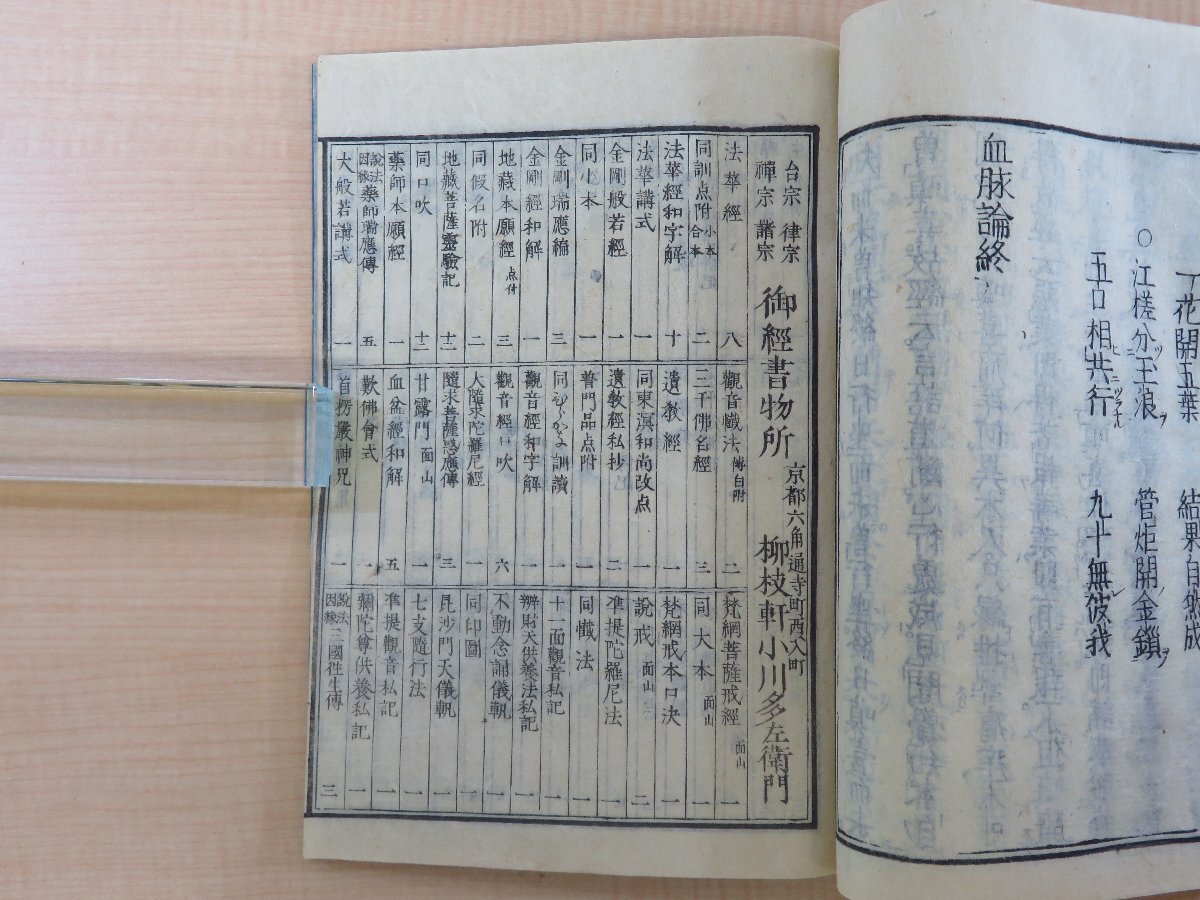 一花開五葉 結果自然成
○江槎分玉浪 管炬開金鎖
五口相共行 九十無彼我
血脉論終
台宗 律宗
禪宗 諸宗
御經書物所 京都六角通寺町西入町 柳枝軒小川多左衛門
法華經 八
同訓点附 小本 合本 二
法華經和字解 十
法華講式 一
金剛般若經 一
同小本 一
金剛瑞應編 三
金剛經和解 一
地藏本願經 点付 三
同假名附 二
地藏菩薩靈驗記 十二
同口吹 十二
藥師本願經 一
説法因縁 藥師瑞應傳 五
大般若講式 一
觀音懺法 傳白附 二
三千佛名經 三
遺教經 一
同東溟和尚改点 一
遺教經私抄 二
普門品点附 一
同ひらかな訓讀 一
觀音經和字解 一
觀音經口吹 六
大隨求陀羅尼經 一
隨求菩薩感應傳 三
甘露門 面山 一
血盆經和解 五
歎佛會式 一
首楞嚴神咒 一
梵網菩薩戒經 面山 一
同大本 面山 一
梵網戒本口決 一
説戒 面山 二
準提陀羅尼法 一
同懺法 一
十一面觀音私記 一
辨財天供養法私記 一
不動念誦儀軌 一
同印圖 一
毘沙門天儀軌 一
七支隨行法 一
準提觀音私記 一
彌陀尊供養私記 一
説法因縁 三國徃生傳 三